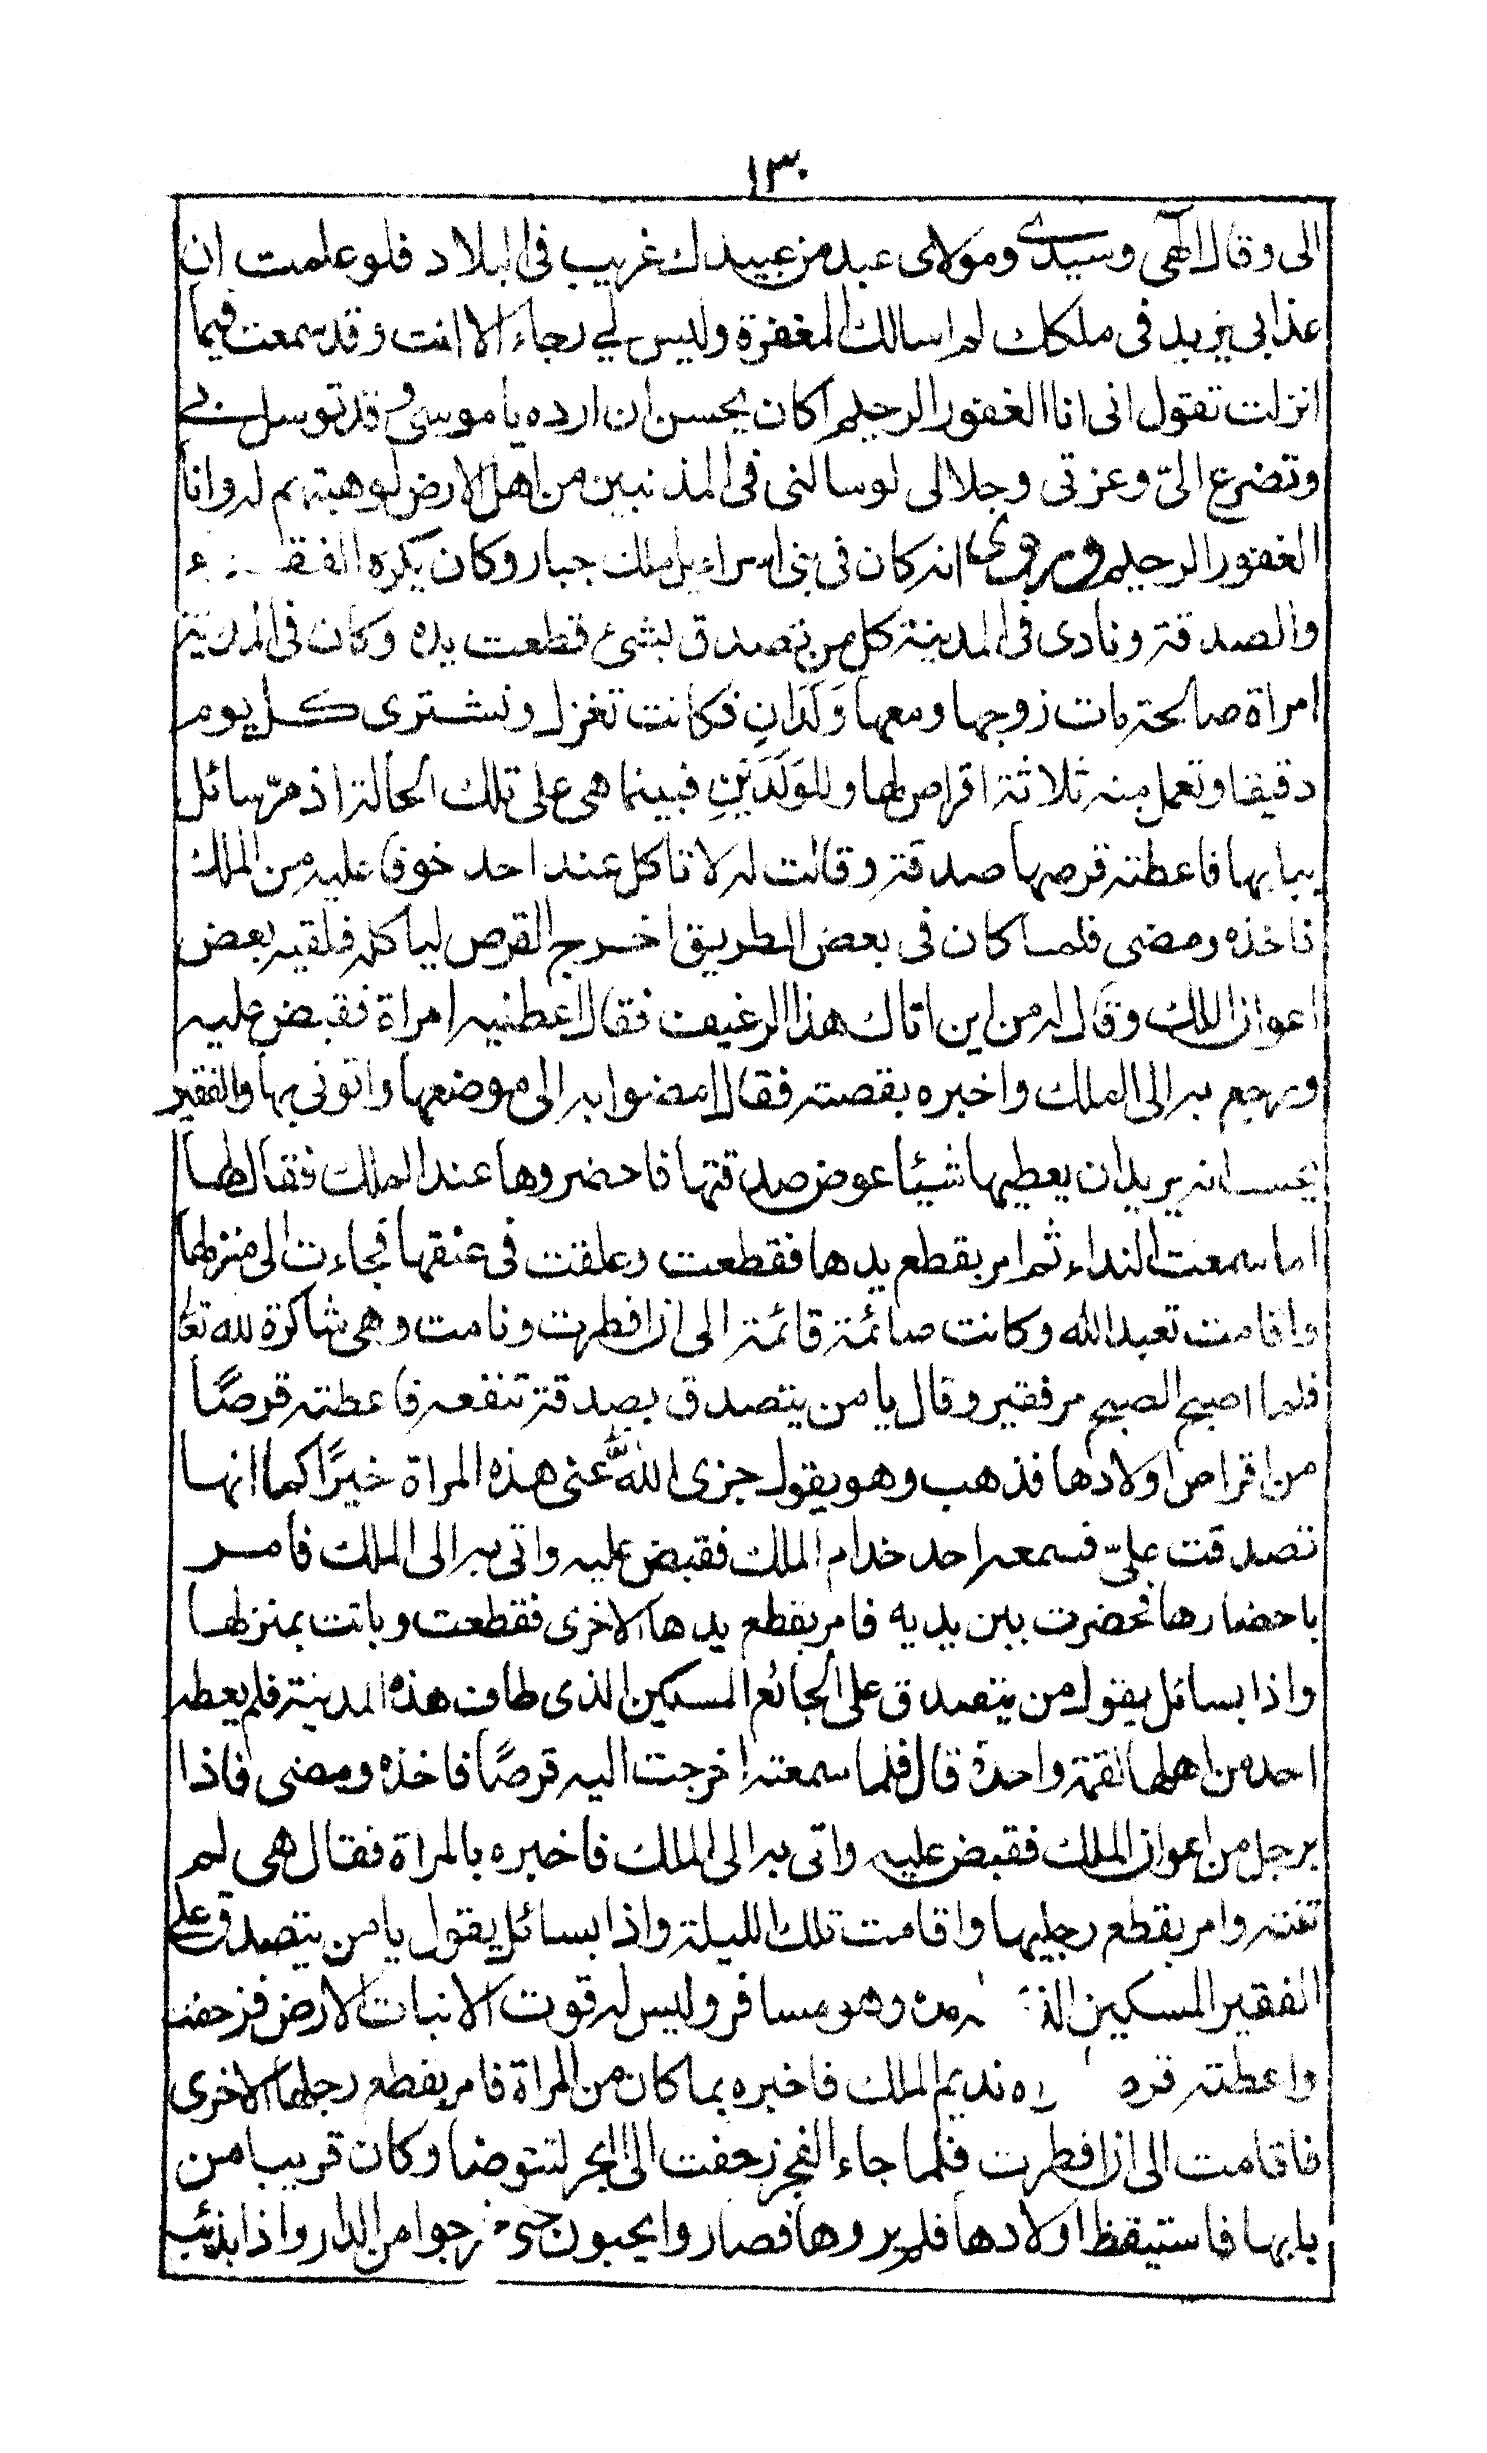 ١٣٠
الى وقال الهى وسيدى ومولاى عبد من عبيدك غريب فى البلاد فلو علمت ان
عذابى يزيد فى ملكك لم اسالك المغفرة وليس لى رجاء الا انت وقد سمعت فيما
انزلت تقول انى انا الغفور الرحيم اكان يحسن ان ارده يا موسى وقد توسل بى
وتضرع الىّ وعزتى وجلالى لو سالنى فى المذنبين من اهل الارض لوهبتهم له وانا
الغفور الرحيم وروى انه كان فى بنى اسراءيل ملك جبار وكان يكره
والصدقة ونادى فى المدينة كل من تصدق بشئ قطعت يده وكان فى المدينة
امراة صالحة مات زوجها ومعها وَلَدَانِ فكانت تغزل وتشترى كل يوم
دقيقا وتعمل منه ثلاثة اقراص لها وللوَلَدَيْنِ فبينما هى على تلك الحالة اذ مرّ سائل
ببابها فاعطته قرصها صدقة وقالت له لا تاكل عند احد خوفا عليه من الملك
فاخذه ومضى فلما كان فى بعض الطريق اخرج القرص لياكله فلقيه بعض
اعوان الملك وقال له من اين اتاك هذا الرغيف فقال اعطنيه امراة فقبض عليه
ورجع به الى الملك واخبره بقصته فقال امضوا به الى موضعها واتونى بها والفقير
يحسب انه يريد ان يعطيها شيئا عوض صدقتها فاحضروها عند الملك فقال لها
اما سمعت النداء ثم امر بقطع يدها فقطعت وعلقت فى عنقها فجاءت الى منزلها
واقامت تعبد الله وكانت صائمة قائمة الى ان افطرت ونامت وهى شاكرة لله تعا
فلما اصبح الصبح مر فقير وقال يا من يتصدق بصدقة تنفعه فاعطته قرصًا
من اقراص اولادها فذهب وهو يقول جزى الله عنى هذه المراة خيرًا كما انها
تصدقت علىّ فسمعه احد خدام الملك فقبض عليه واتى به الى الملك فامر
باحضارها فحضرت بين يديه فامر بقطع يدها الاخرى فقطعت وباتت بمنزلها
واذا بسائل يقول من يتصدق على الجائع المسكين الذى طاف هذه المدينة فلم يعطه
احد من اهلها لقمة واحدة قال فلما سمعته اخرجت اليه قرصًا فاخذه ومضى فاذا
برجل من اعوان الملك فقبض عليه واتى به الى الملك فاخبره بالمراة فقال هى لم
تنته وامر بقطع رجليها واقامت تلك الليلة واذا بسائل يقول يا من يتصدق على
الفقير المسكين وهو مسافر وليس له قوت الا نبات الارض فزحفت
واعطته نديم الملك فاخبره بما كان من المراة فامر بقطع رجلها الاخرى
فاقامت الى ان افطرت فلما جاء الفجر زحفت الى البحر لتتوضا وكان قريبا من
بابها فاستيقظ اولادها فلم يروها فصاروا يحبون حتى خرجوا من الدار واذا بذئب